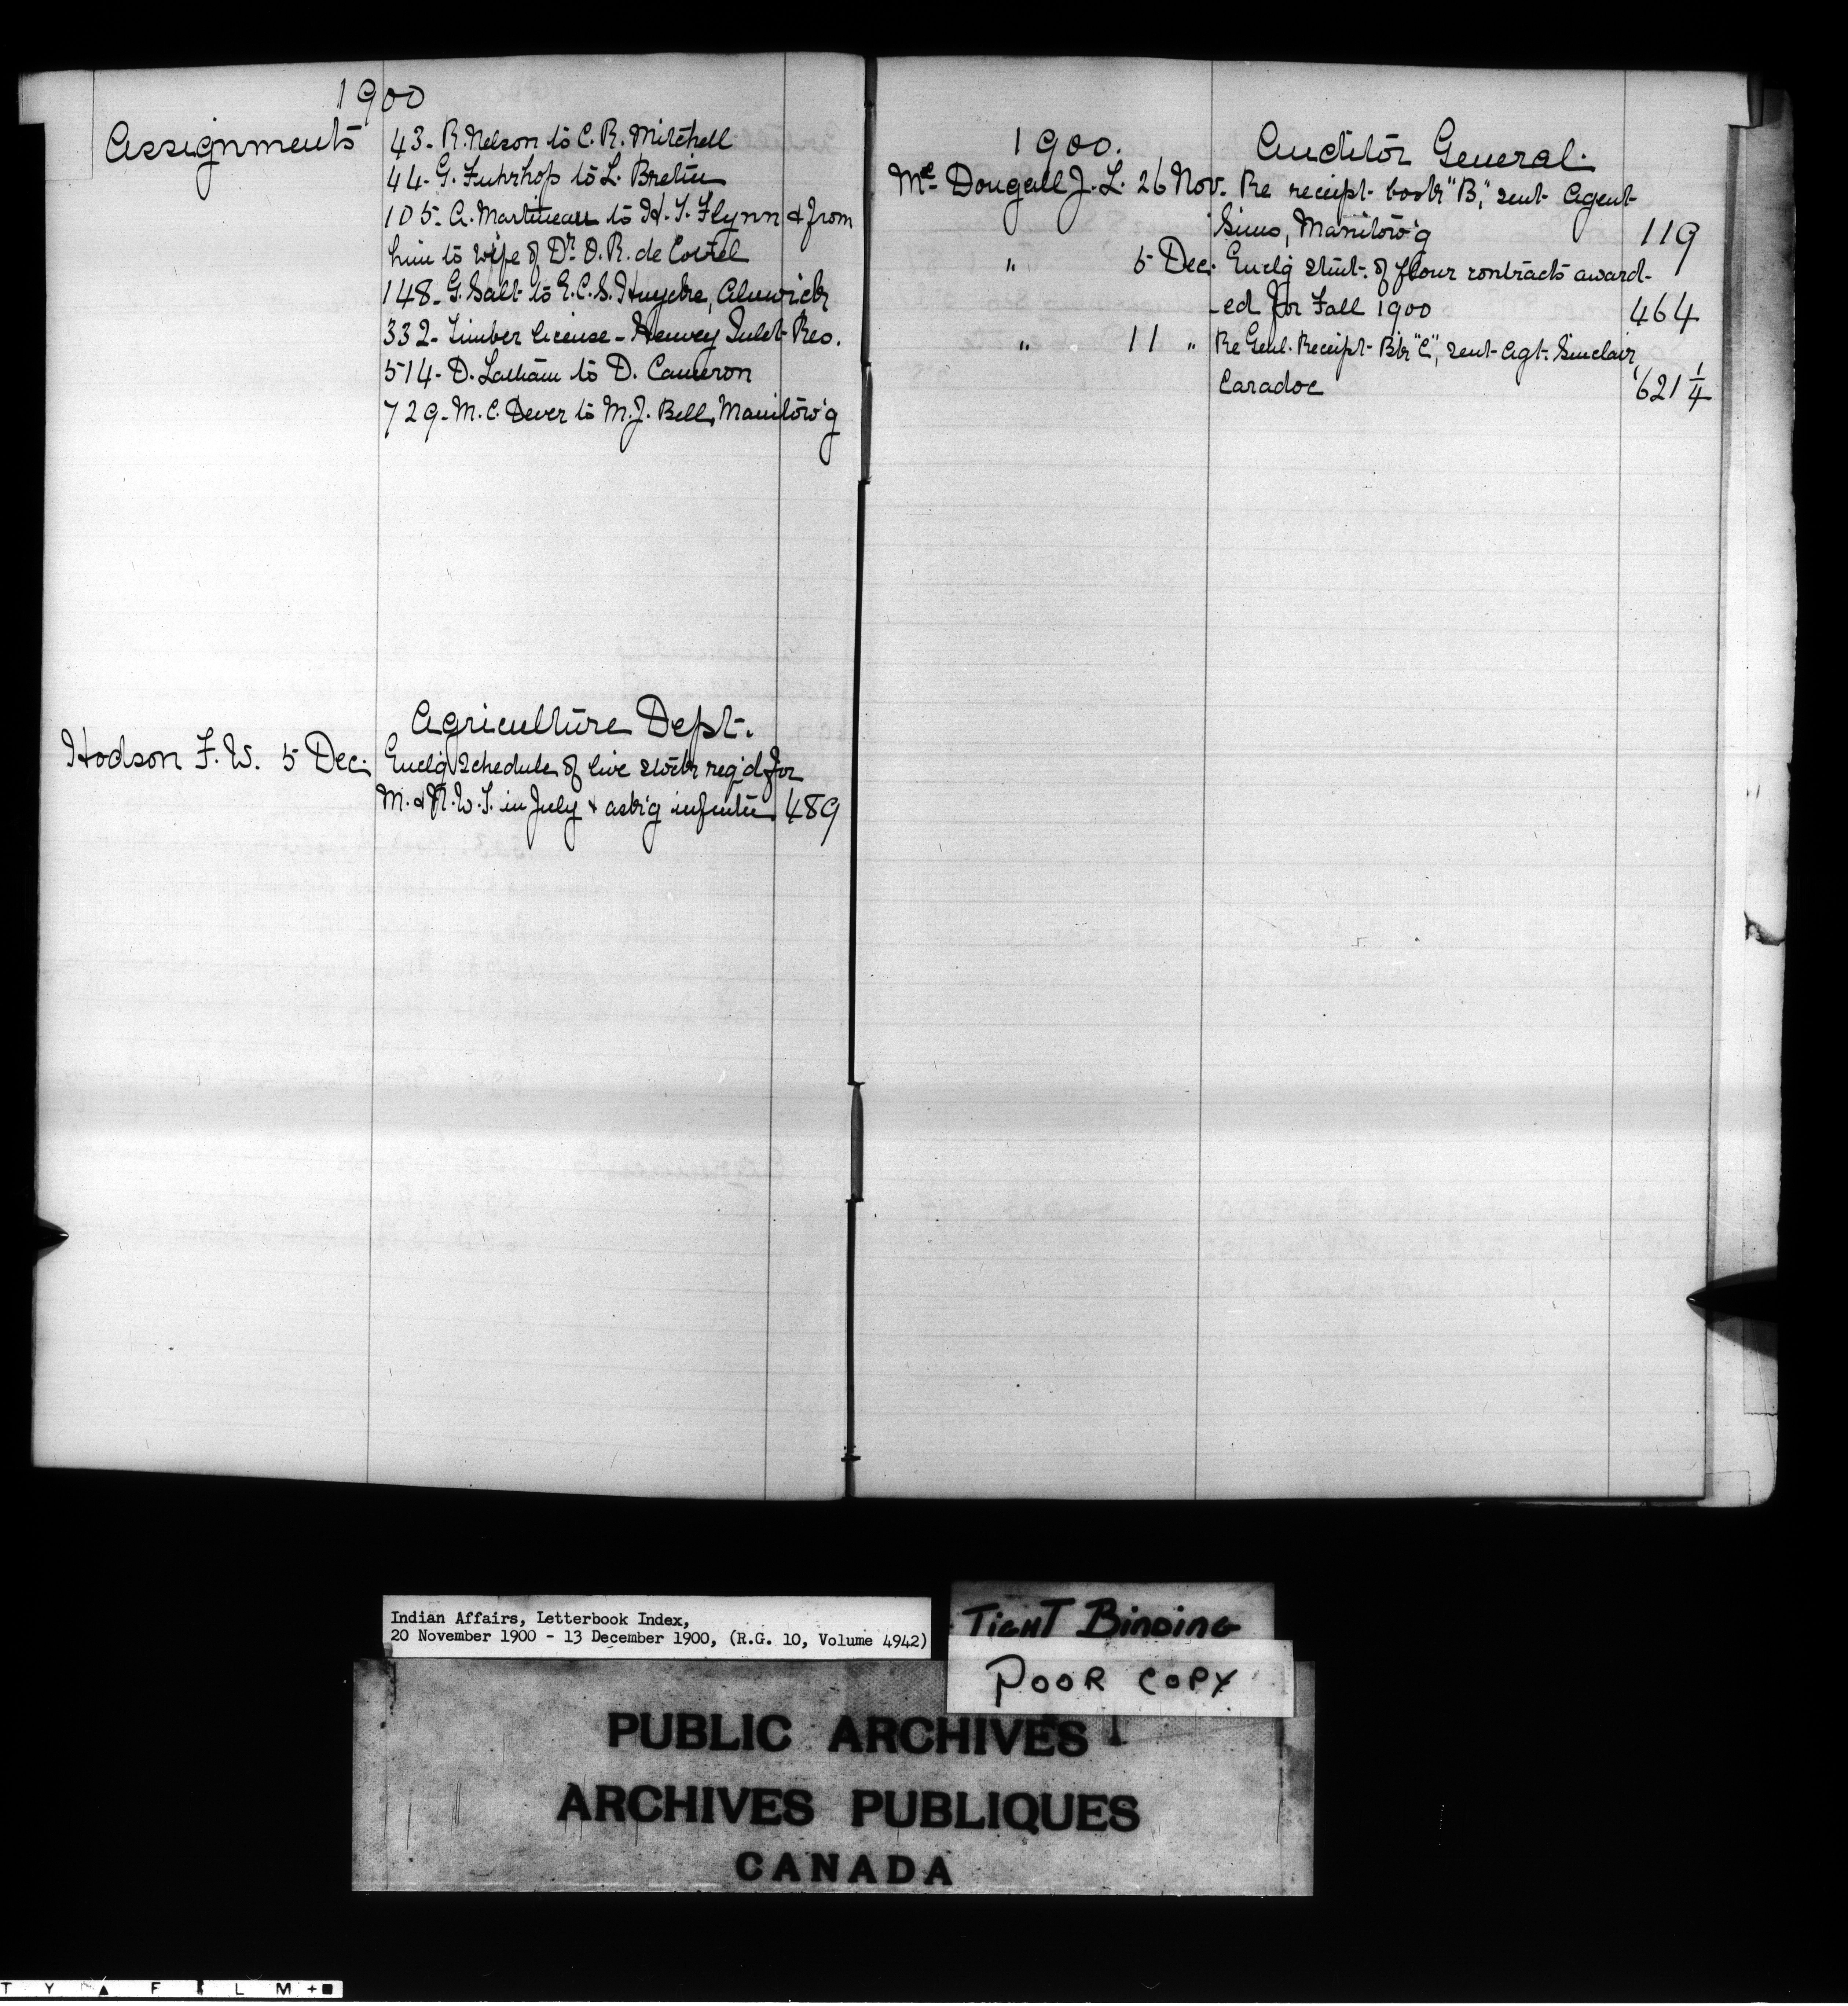 1900
Assignments
43- R. Nelson to C. R. Mitchell
44- G. Fuhrhop to L. Bretin
105- A. Martineau to H. T. Flynn & from
him to wife of Dr. O. R. de Cottel
148- G. Salt to E. C. S. Huycke, Alnwick
332- Timber license - Henvey Inlet Res.
514- D. Latham to D. Cameron
729- M. C. Dever to M. J. Bell, Manitow'g
Agriculture Dept.
Hodson F. W. 5 Dec. Enclg schedule of live stock req'd for
M. & N. W. T. in July & ask'g infmtn 489
1900. Auditor General.
Mc Dougall J. L. 26 Nov. Re receipt book "B", sent Agent
Sims, Manitow'g 119
" 5 Dec. Enclg stmt. of flour contracts award-
-ed for Fall 1900 464
" 11 " Re Genl. Receipt Bk "C", sent Agt. Sinclair,
Caradoc 621 1/4
Indian Affairs, Letterbook Index,
20 November 1900 - 13 December 1900, (R.G. 10, Volume 4942)
TIGHT BINDING
POOR COPY
PUBLIC ARCHIVES
ARCHIVES PUBLIQUES
CANADA
T Y ▲ F I L M +■